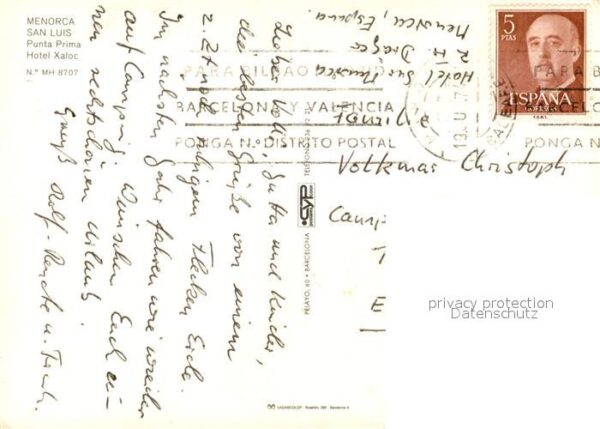 MENORCA
SAN LUIS
Punta Prima
Hotel Xaloc
N.º MH 8707
Lieber Volki, Jutta und Kinder,
die besten Grüße von einem
z. Zt. noch ruhigen Flecken Erde.
Im nächsten Jahr fahren wir wieder
auf Camping. Wünschen Euch ei-
nen recht schönen Urlaub
Gruß Rolf, Renate u. Frank.
Hotel Sur Menorca
Menorca, España
PARA BILBAO
BARCELONA Y VALENCIA
PONGA N.º DISTRITO POSTAL
PARA B
BARCELON
PONGA N
5
PTAS
ESPAÑA
CORREOS
F.N.M.T.
Volkmar Christoph
Cam
E
PELAYO, 60 • BARCELONA
TELEFONO
privacy protection
Datenschutz